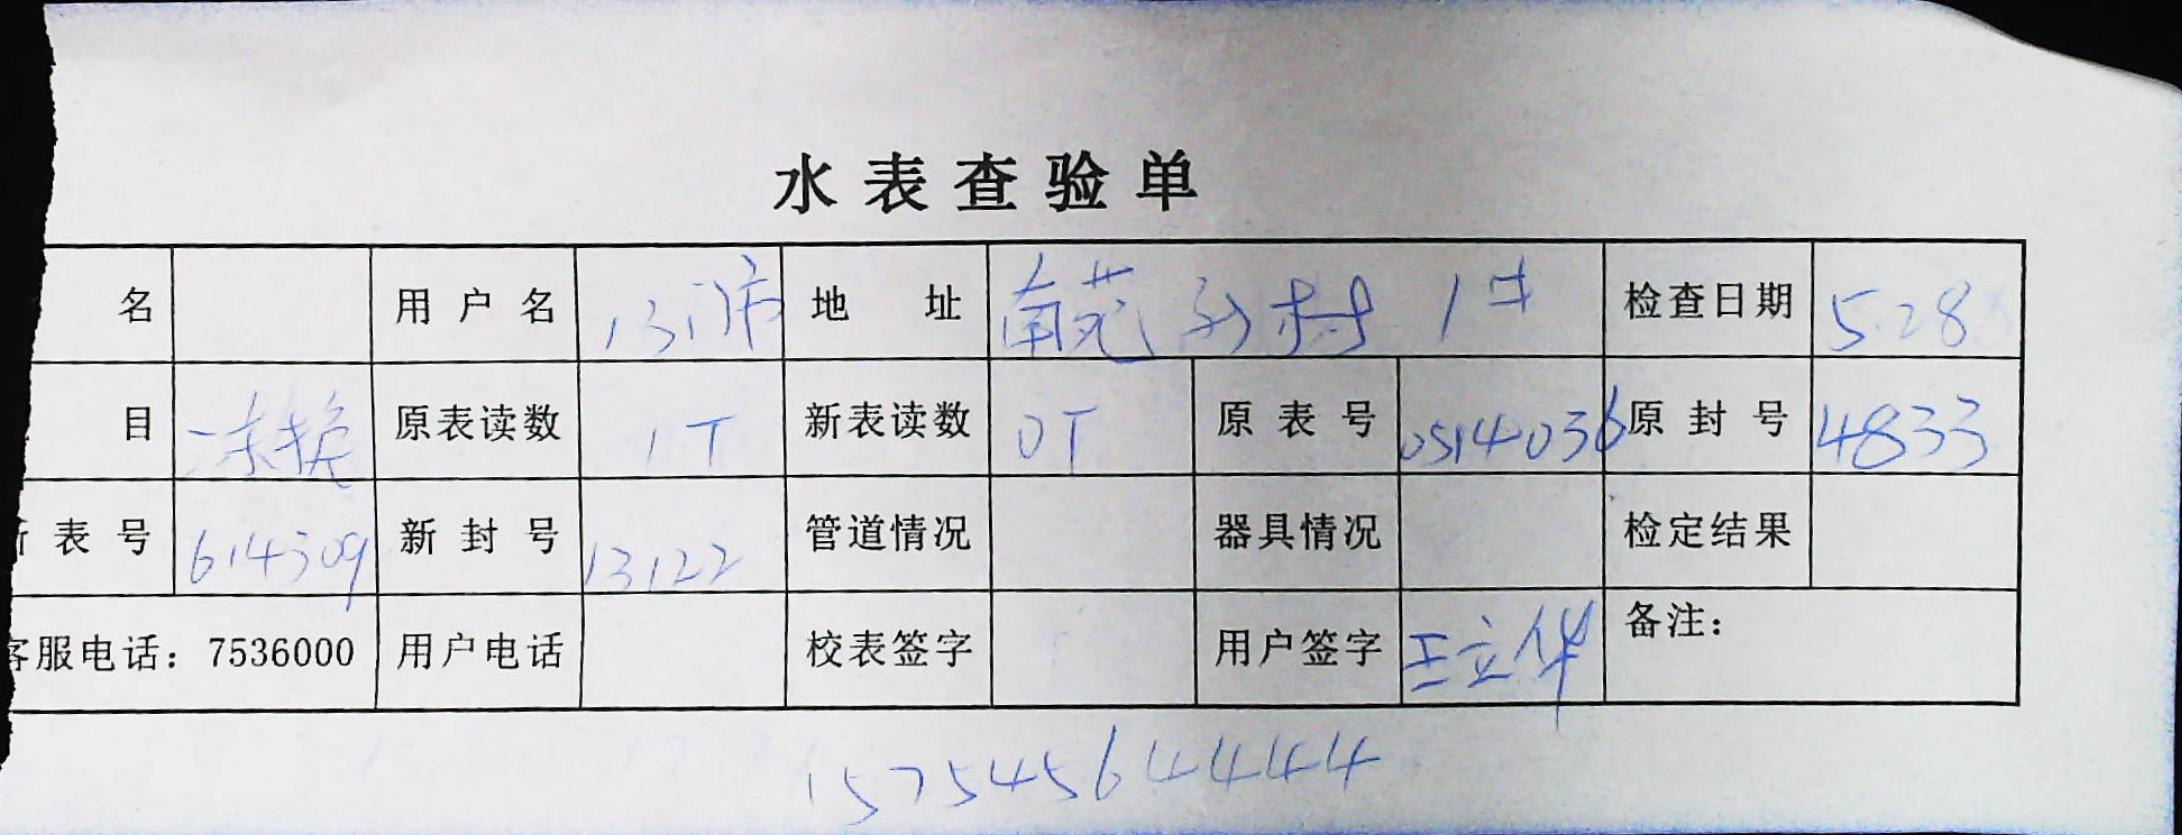 水表查验单
名 用户名 13门市 地址 南苑新村 1# 检查日期 5.28
目 冻换 原表读数 1T 新表读数 0T 原表号 0514036 原封号 4833
表号 614309 新封号 13122 管道情况 器具情况 检定结果
客服电话：7536000 用户电话 校表签字 用户签字 王立华 备注：
15754564444